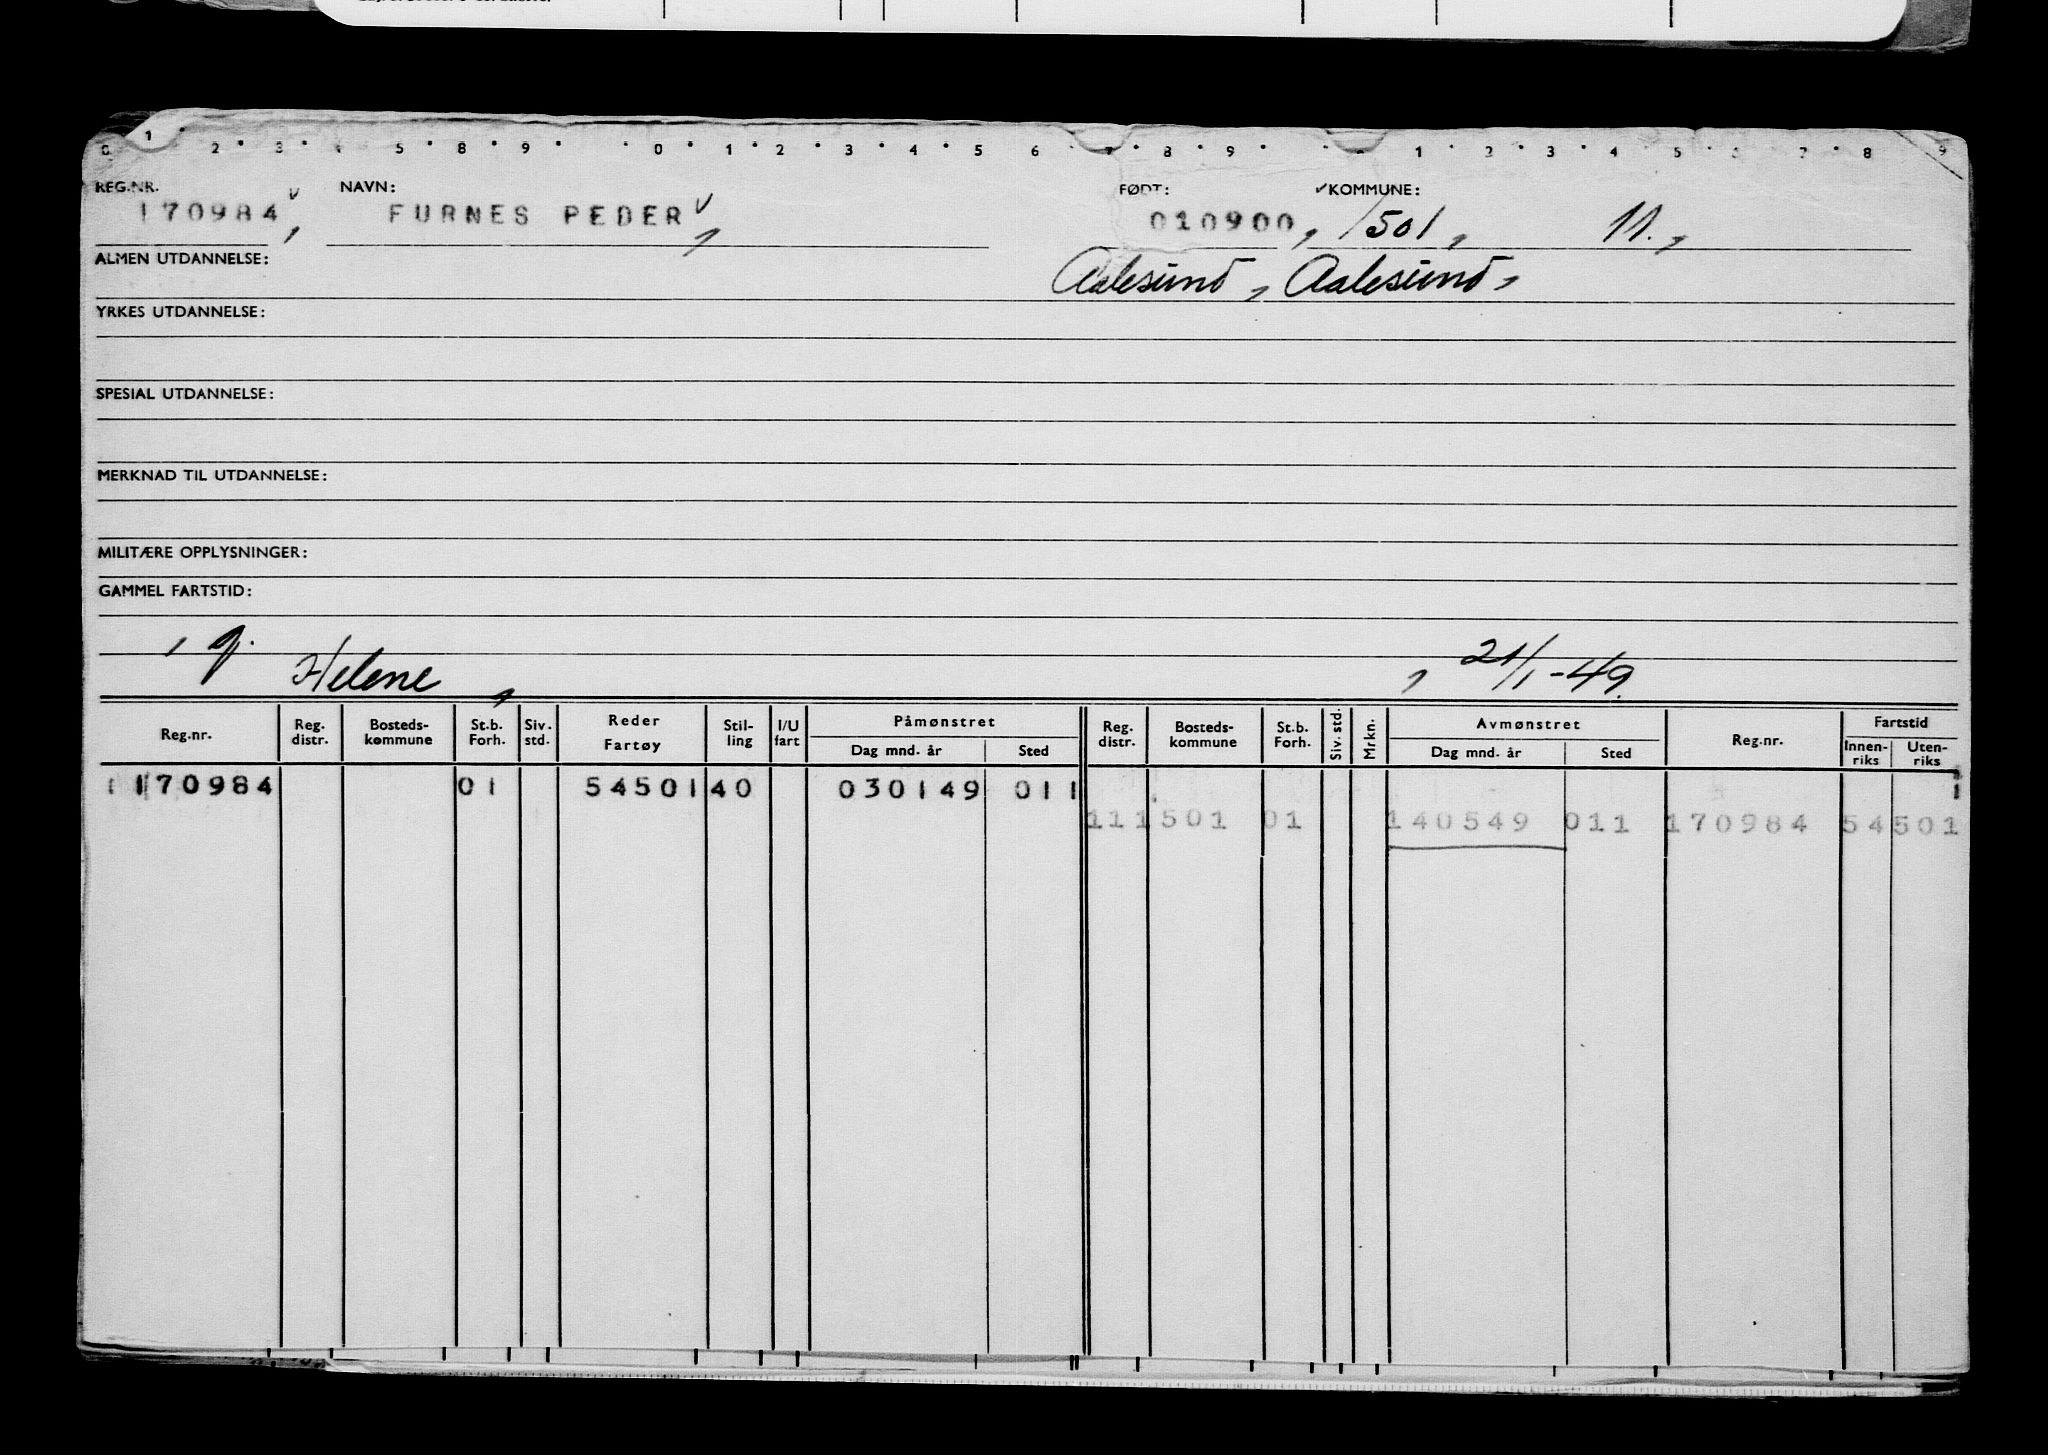 0 1 2 3 5 8 9 0 1 2 3 4 5 6 7 8 9 1 2 3 4 5 6 7 8 9
REG.NR. NAVN: FØDT: KOMMUNE:
170984 FURNES PEDER 010900, 1501, 11.,
ALMEN UTDANNELSE: Aalesund, Aalesund,
YRKES UTDANNELSE:
SPESIAL UTDANNELSE:
MERKNAD TIL UTDANNELSE:
MILITÆRE OPPLYSNINGER:
GAMMEL FARTSTID:
, g. Helene, , 21/1-49.
Reg.nr. Reg. distr. Bosteds-kommune St.b. Forh. Siv. std. Reder Fartøy Stil-ling I/U fart Påmønstret Dag mnd. år Sted Reg. distr. Bosteds-kommune St.b. Forh. Siv. std. Mrkn. Avmønstret Dag mnd. år Sted Reg.nr. Fartstid Innen-riks Uten-riks
170984 01 54501 40 030149 011
111 501 01 140549 011 170984 54 501